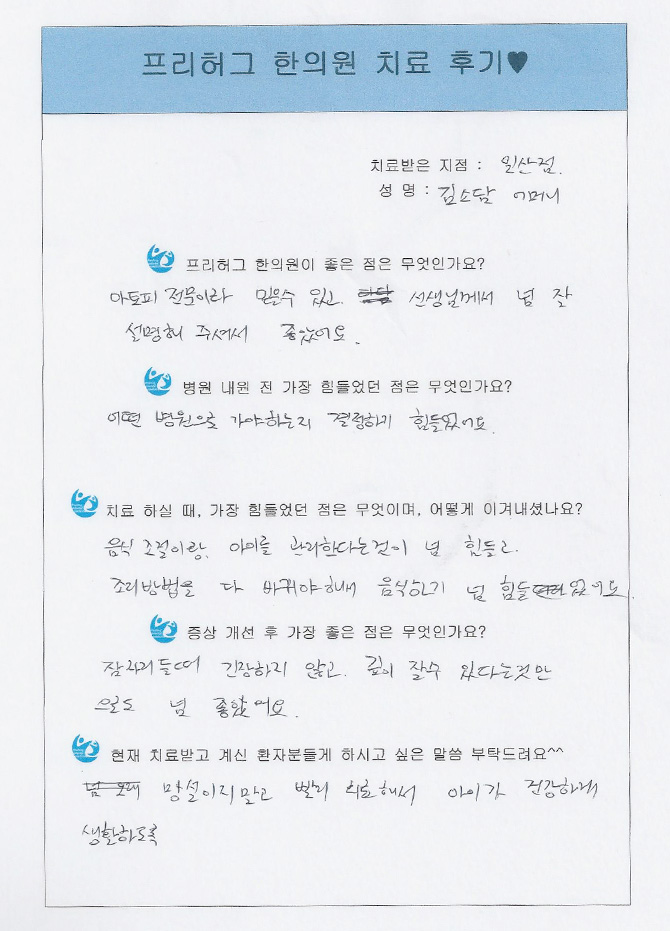 프리허그 한의원 치료 후기♥
치료받은 지점 : 일산점.
성 명 : 김소담 어머니
프리허그 한의원이 좋은 점은 무엇인가요?
아토피 전문이라 믿을수 있고. 선생님께서 넘 잘
설명해 주셔서 좋았어요.
병원 내원 전 가장 힘들었던 점은 무엇인가요?
어떤 병원으로 가야하는지 결정하기 힘들었어요.
치료 하실 때, 가장 힘들었던 점은 무엇이며, 어떻게 이겨내셨나요?
음식 조절이랑, 아이를 관리한다는것이 넘 힘들고.
조리방법을 다 바꿔야해서 음식하기 넘 힘들었어요.
증상 개선 후 가장 좋은 점은 무엇인가요?
잠자리들때 긴장하지 않고. 깊이 잘수 있다는것만
으로도 넘 좋았어요.
현재 치료받고 계신 환자분들게 하시고 싶은 말씀 부탁드려요^^
망설이지말고 빨리 치료해서 아이가 건강하게
생활하도록